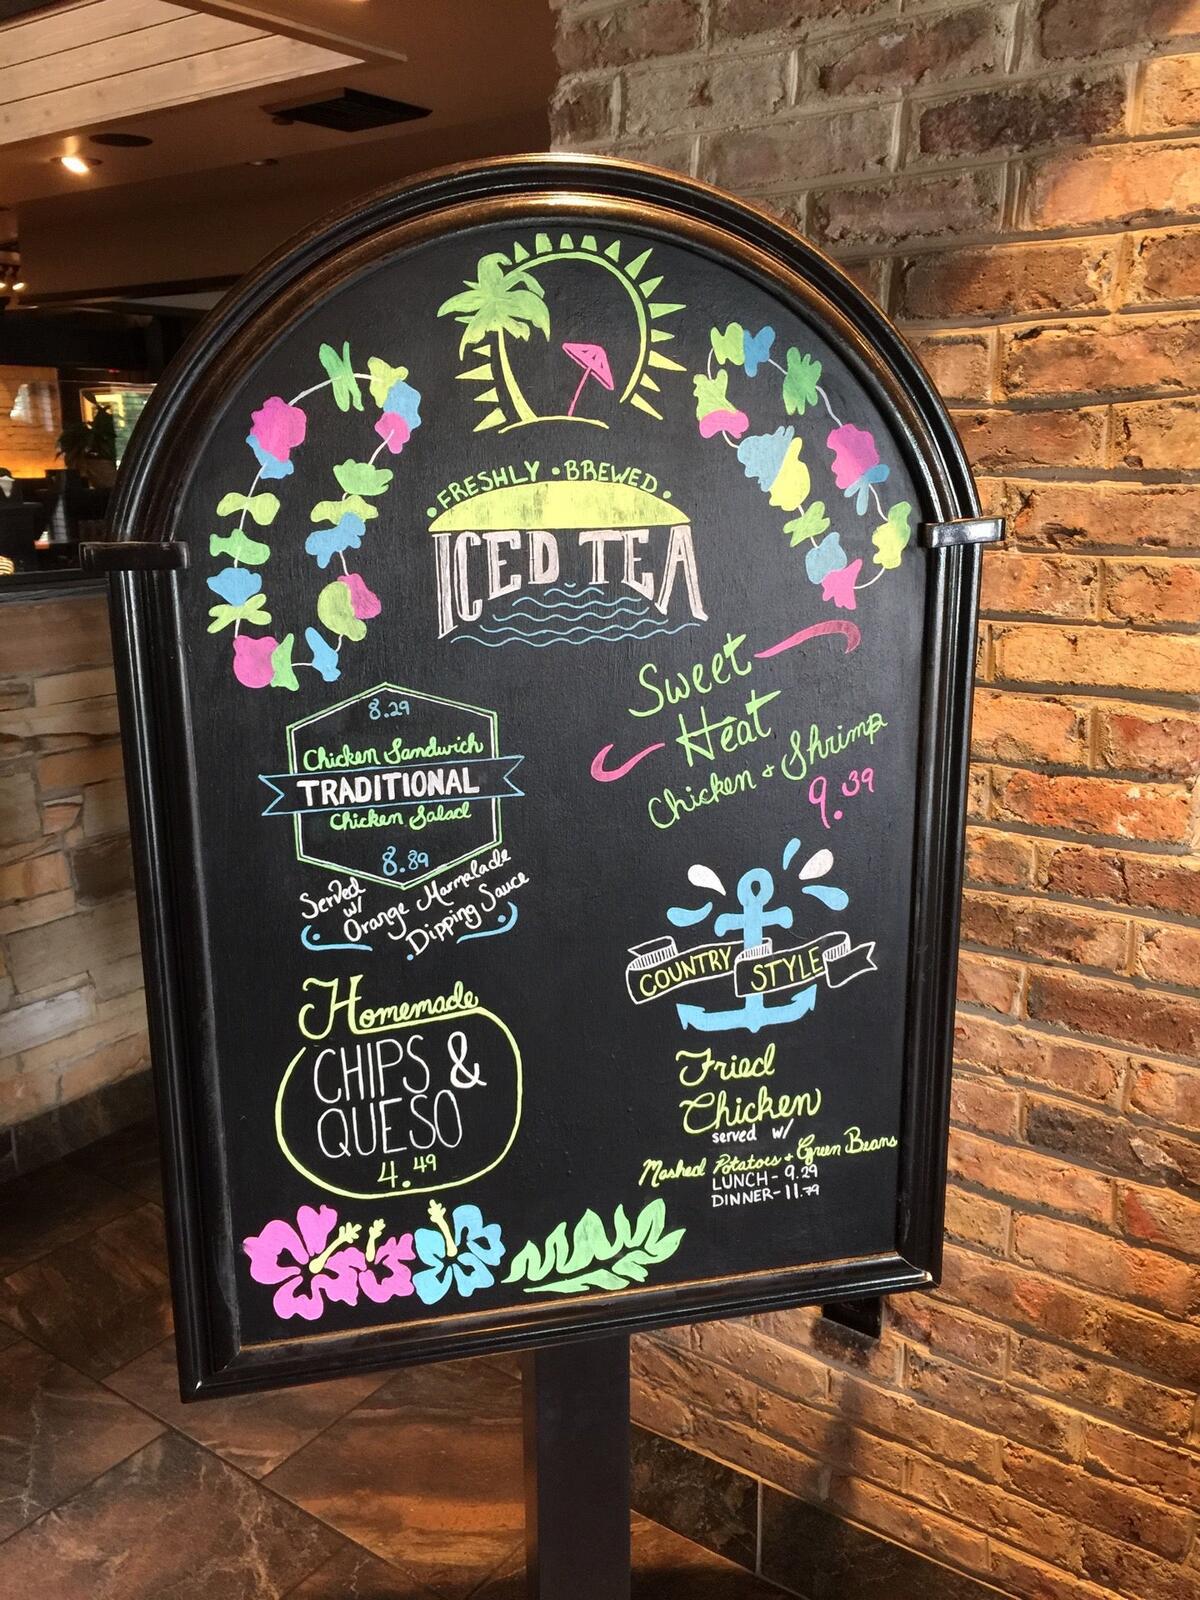 FRESHLY • BREWED
ICED TEA
8.29
Chicken Sandwich
TRADITIONAL
Chicken Salad
8.89
Served
w/
Orange Marmalade
Dipping Sauce
Homemade
CHIPS &
QUESO
4.49
Sweet
Heat
Chicken + Shrimp
9.39
COUNTRY STYLE
Fried
Chicken
served w/
Mashed Potatoes + Green Beans
LUNCH - 9.29
DINNER - 11.79